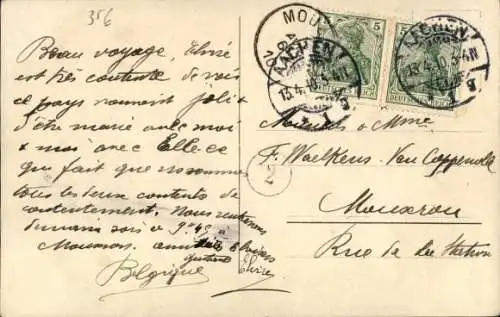 356
Beau voyage, Elvire
est très contente de voir
ce pays vraiment joli &
d'être marié avec moi
& moi avec Elle - ce
que fait que nous sommes
tous les deux contents de
contentement. Nous rentrerons
demain soir à 9h 48 à
Mouscron.
Belgique
Elvire
MOU
AACHEN
13.4.10. 3-4N
1
AACHEN
13.4.10. 3-4N
1
5
5
DEUTSCHES REICH
Monsieur & Mme
F. Waelkens-Van Coppenolle
2
Mouscron
Rue de la Station